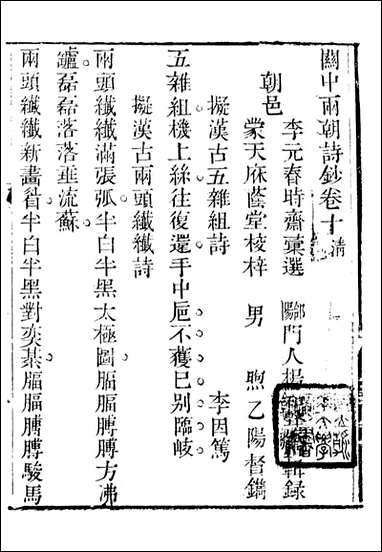 關中兩朝詩鈔卷十 清
李元春時齋彙選 郃陽門人楊 輯錄
朝邑
蒙天庥蔭堂校梓 男 煦乙陽督鐫
擬漢古五雜組詩 李因篤
五雜組機上絲往復還手中巵不獲已别臨岐
擬漢古兩頭纖纖詩
兩頭纖纖滿張弧半白半黑太極圖腷腷膊膊方沸
鑪磊磊落落垂流蘇
兩頭纖纖新畫眉半白半黑對奕棊腷腷膊膊駿馬